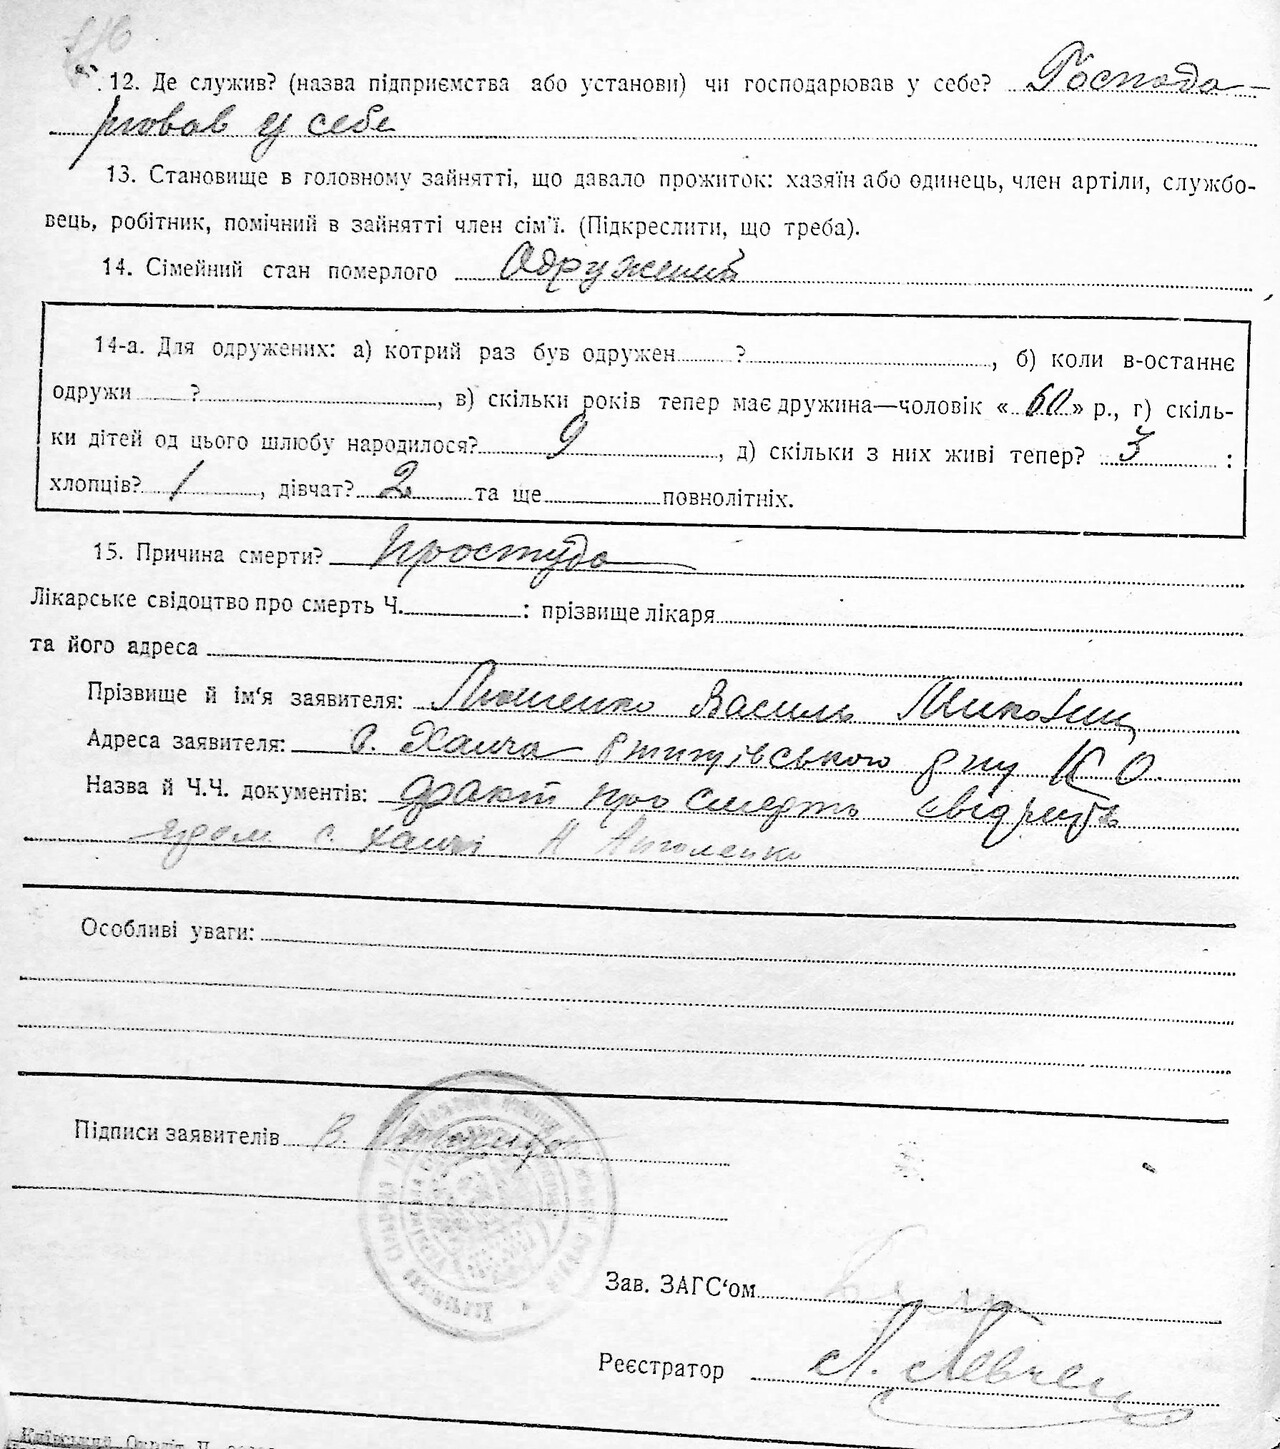 12. Де служив? (назва підприємства або установи) чи господарював у себе? Господа-
рював у себе
13. Становище в головному зайнятті, що давало прожиток: хазяїн або одинець, член артіли, службо-
вець, робітник, помічний в зайнятті член сім'ї. (Підкреслити, що треба).
14. Сімейний стан померлого Одружений
14-а. Для одружених: а) котрий раз був одружен ? , б) коли в-останнє
одружи ? , в) скільки років тепер має дружина—чоловік «60» р., г) скіль-
ки дітей од цього шлюбу народилося? 9 , д) скільки з них живі тепер? 3 :
хлопців? 1 , дівчат? 2 та ще повнолітніх.
15. Причина смерти? простуда
Лікарське свідоцтво про смерть Ч. : прізвище лікаря
та його адреса
Прізвище й ім'я заявителя: Василь
Адреса заявителя: с. Халча ржищівського р ну К О.
Назва й Ч.Ч. документів: факт про смерть
с. Халчі
Особливі уваги:
Підписи заявителів В.
Зав. ЗАГС'ом
Реєстратор Л. Левчен
Київський